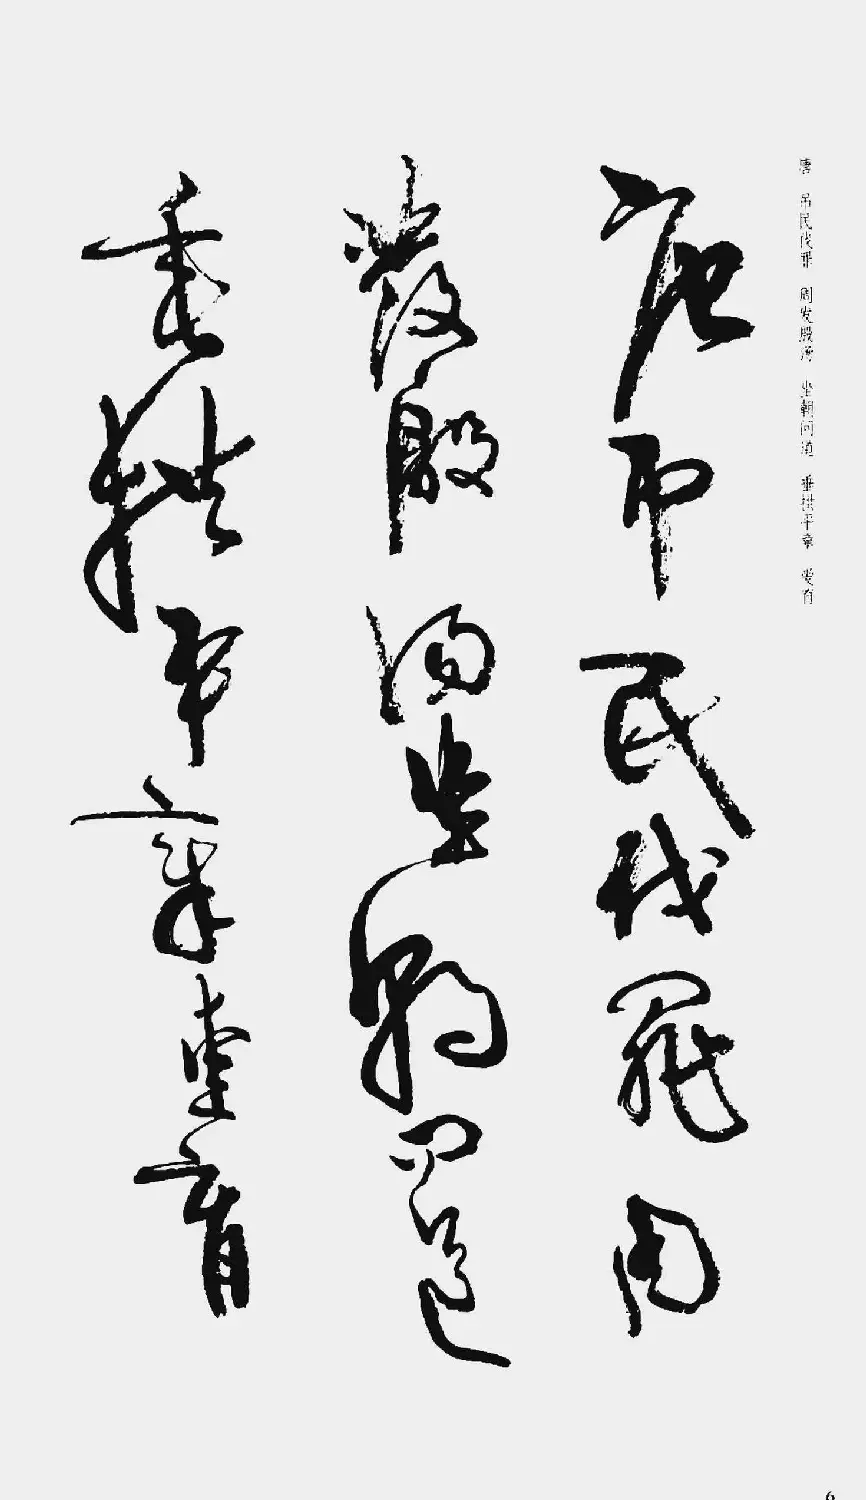 唐 吊民伐罪 周发殷汤 坐朝问道 垂拱平章 爱育
唐吊民伐罪周
發殷湯坐朝問道
垂拱平章愛育
6